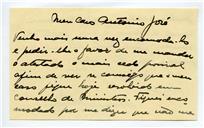 Meu caro Antonio José
Venho mais uma vez incomodal-o
e pedir-lhe o favor de me mandar
o atestado o mais cedo possivel
afim de ver se consigo que o meu
caso fique hoje resolvido em
Conselho de Ministros.
modado por me dizer que não me